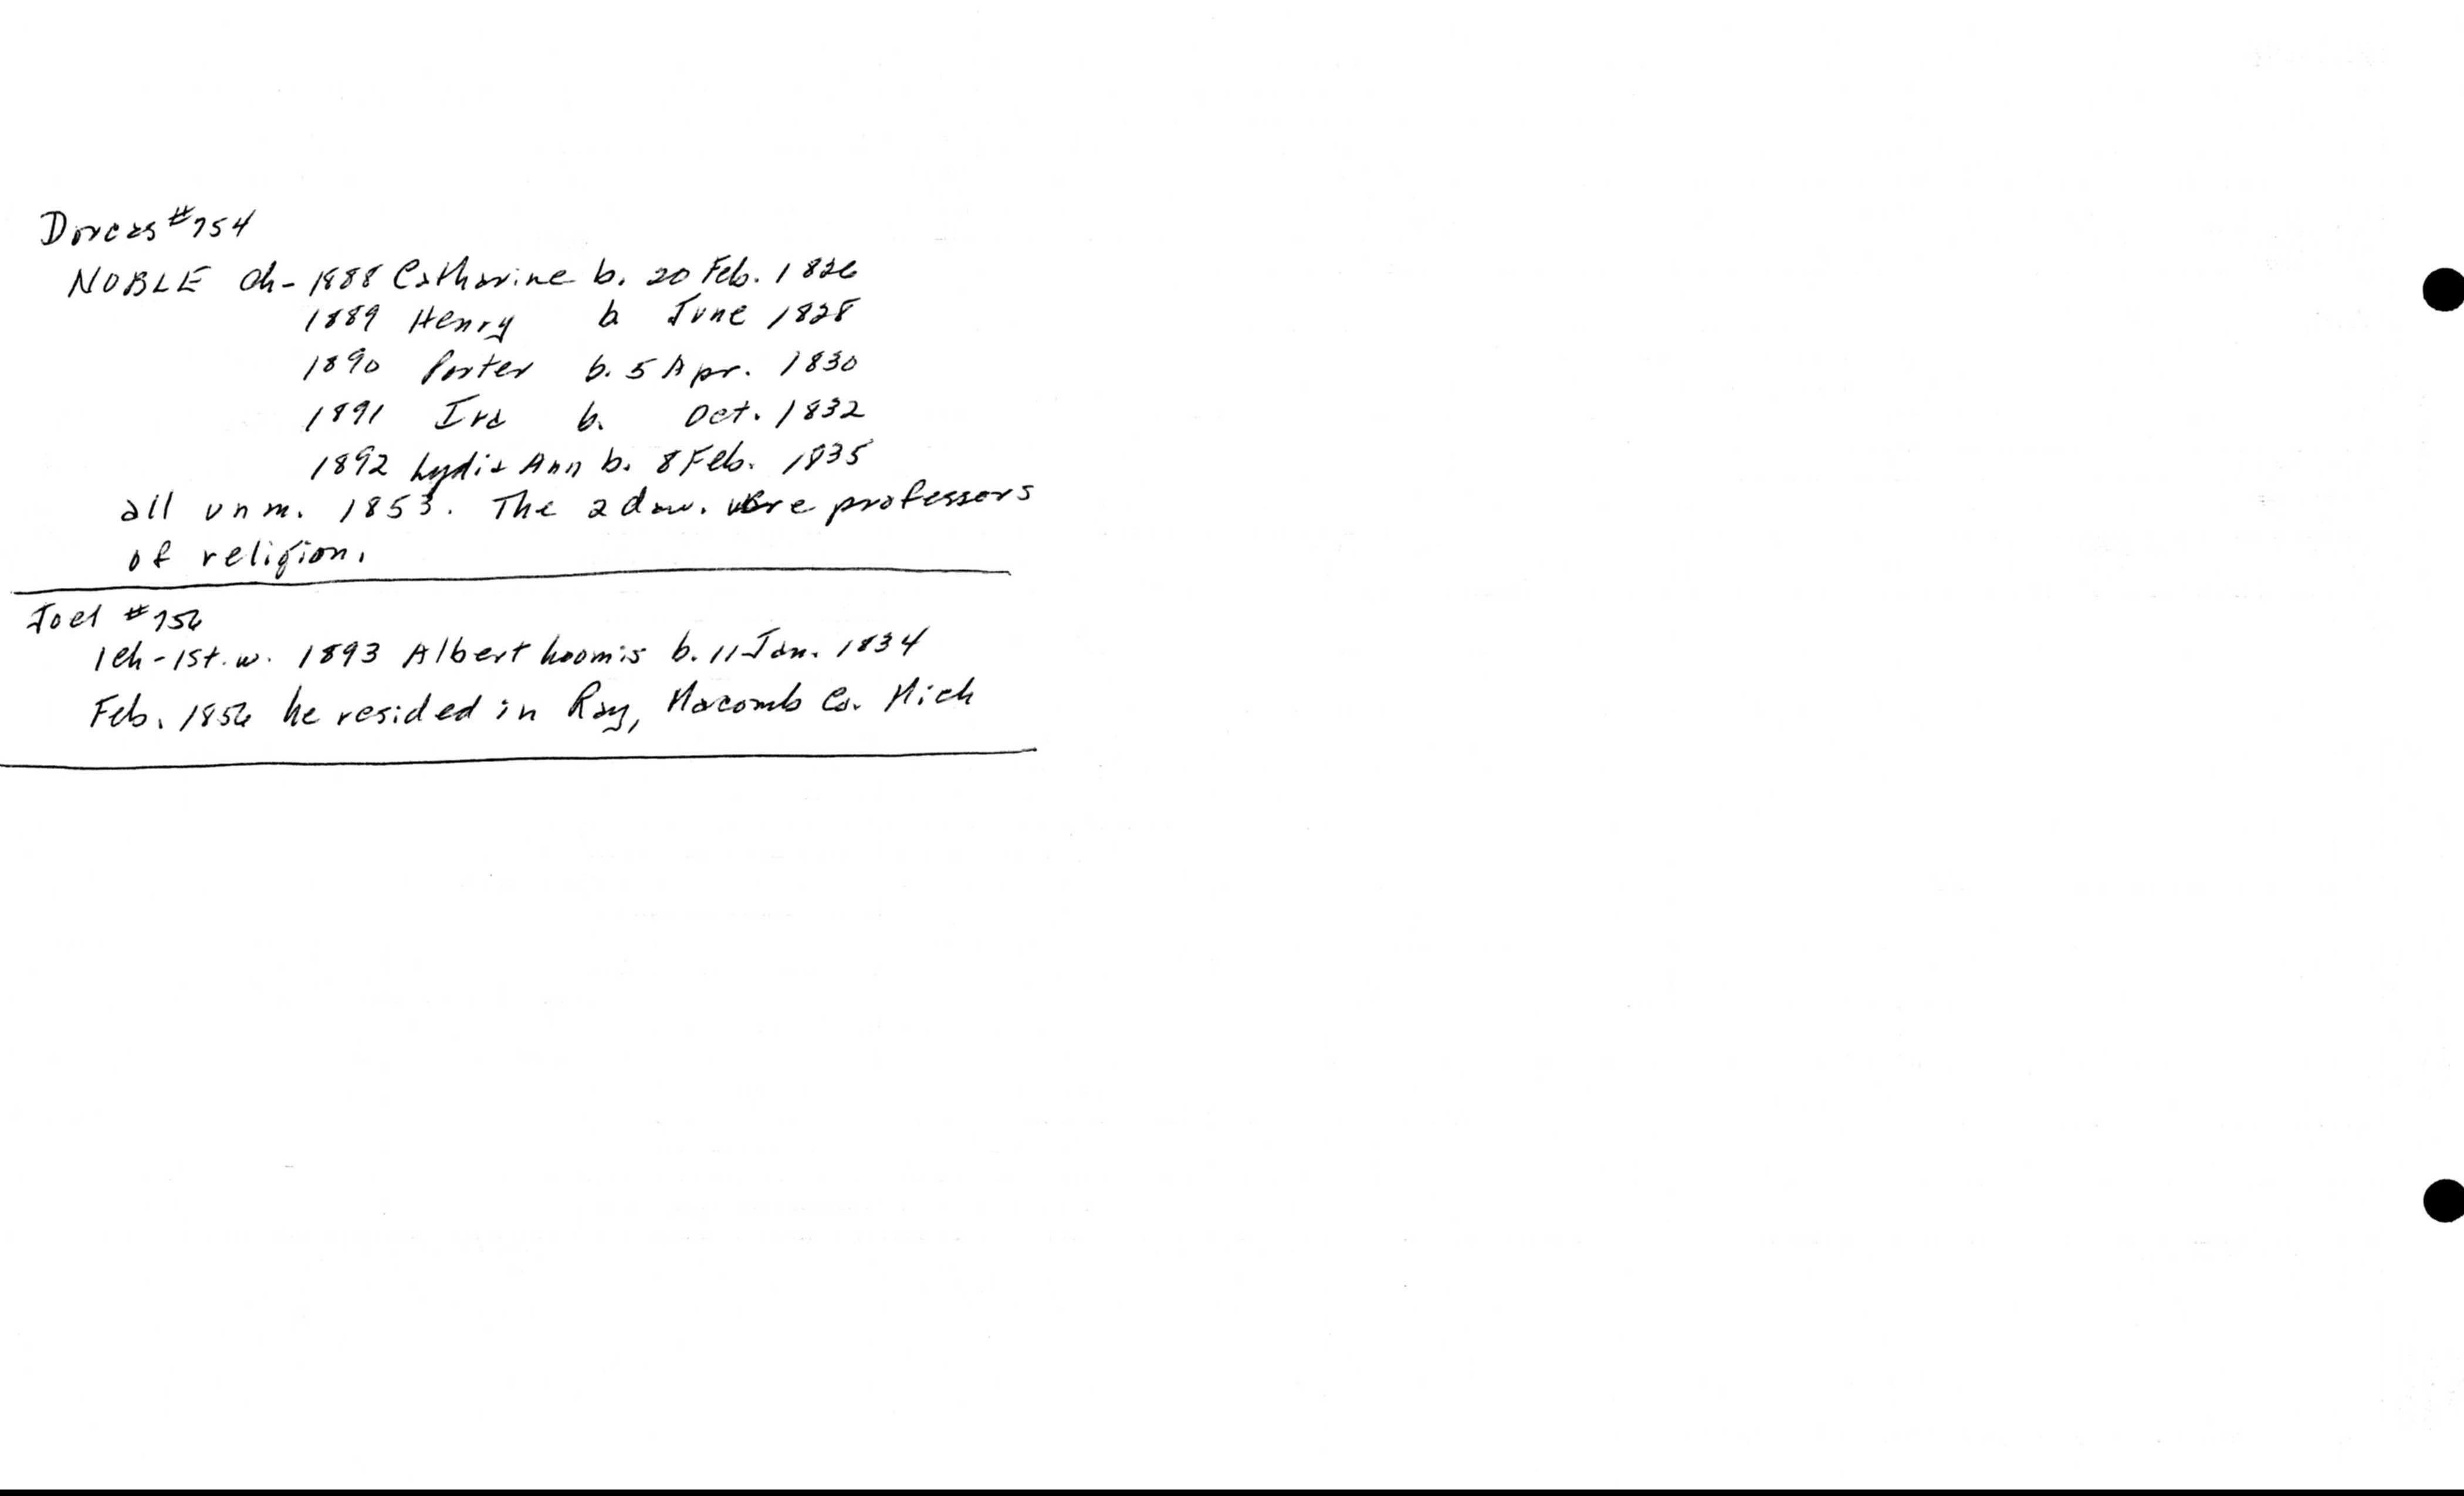 Dorcas #754
NOBLE Ch- 1888 Catharine b. 20 Feb. 1826
1889 Henry b June 1828
1890 Porter b. 5 Apr. 1830
1891 Ira b. Oct. 1832
1892 Lydia Ann b. 8 Feb. 1835
all unm. 1853. The 2 dau. were professors
of religion.
Joel #756
1 ch - 1st. w. 1893 Albert Loomis b. 11 Jan. 1834
Feb. 1856 he resided in Ray, Macomb Co. Mich